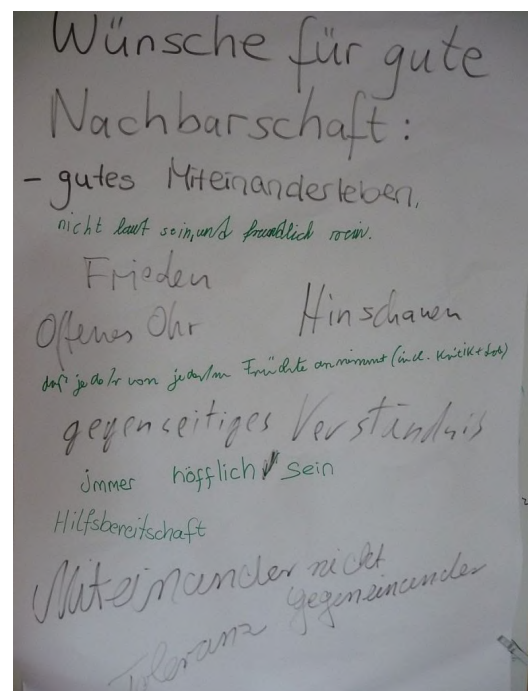 Wünsche für gute
Nachbarschaft:
- gutes Miteinanderleben,
nicht laut sein, und freundlich sein.
Frieden
Offenes Ohr Hinschauen
daß jede/r von jeder/m Früchte annimmt (incl. Kritik + Lob)
gegenseitiges Verständnis
immer höfflich sein
Hilfsbereitschaft
Miteinander nicht
gegeneinander
Toleranz